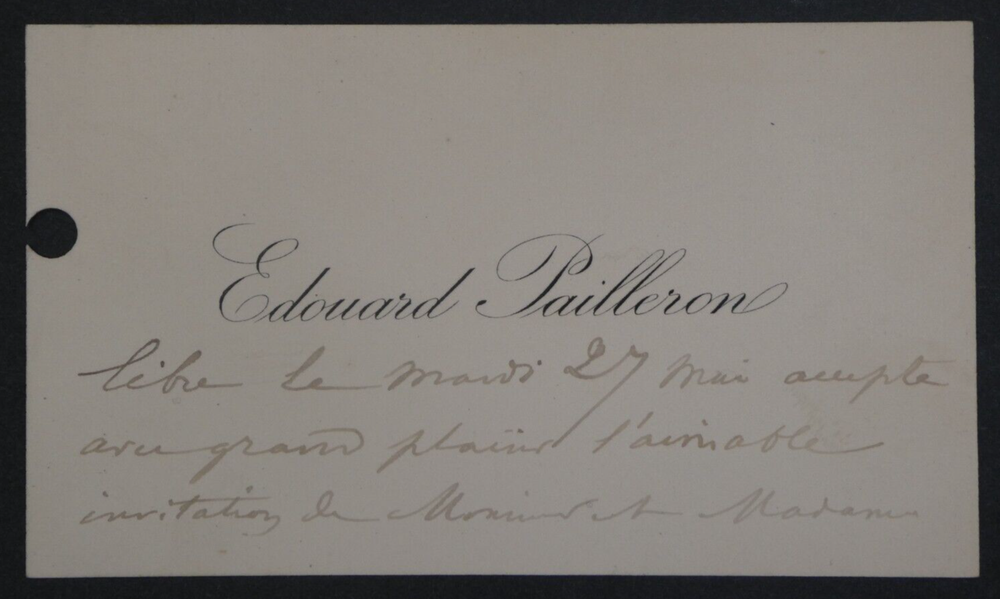 Edouard Pailleron
libre le mardi 27 mai accepte
avec grand plaisir l'aimable
invitation de Monsieur et Madame